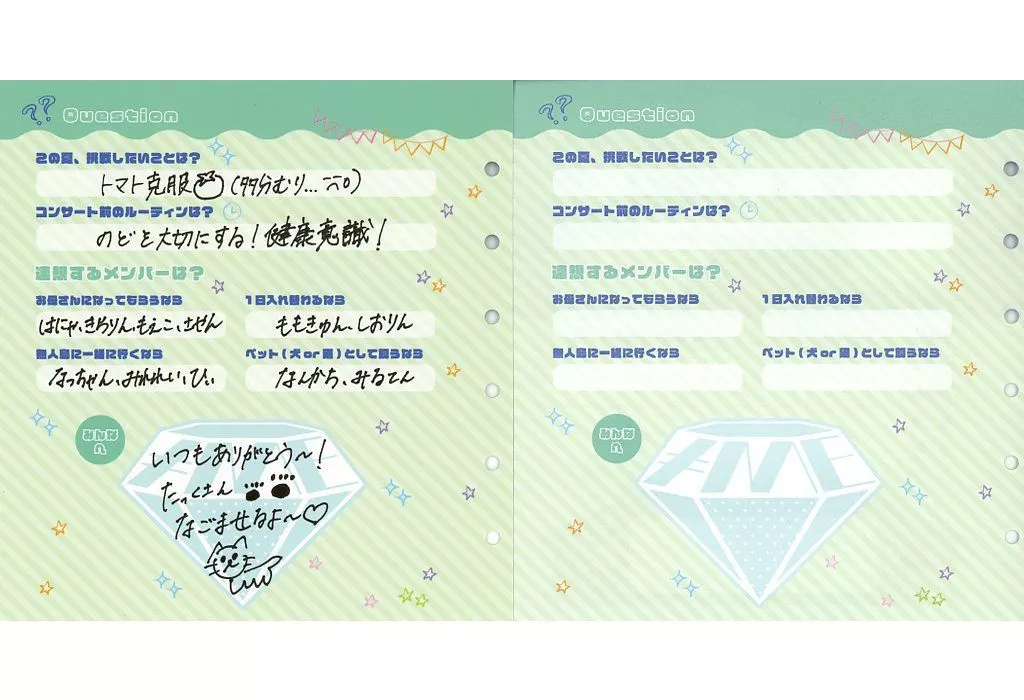 Question
この夏、挑戦したいことは?
トマト克服 (多分むり…
コンサート前のルーティンは?
のどを大切にする!健康意識!
連想するメンバーは?
お母さんになってもらうなら
はにゃ、きらりん、もえこ、させん
1日入れ替わるなら
ももきゅん、しおりん
無人島に一緒に行くなら
なっちゃん、みれい、ひぃ
ペット(犬or猫)として飼うなら
なんかち、みるてん
みんな
へ
いつもありがとう〜!
たっくさん
なごませるよ〜♡
Question
この夏、挑戦したいことは?
コンサート前のルーティンは?
連想するメンバーは?
お母さんになってもらうなら
1日入れ替わるなら
無人島に一緒に行くなら
ペット(犬or猫)として飼うなら
みんな
へ